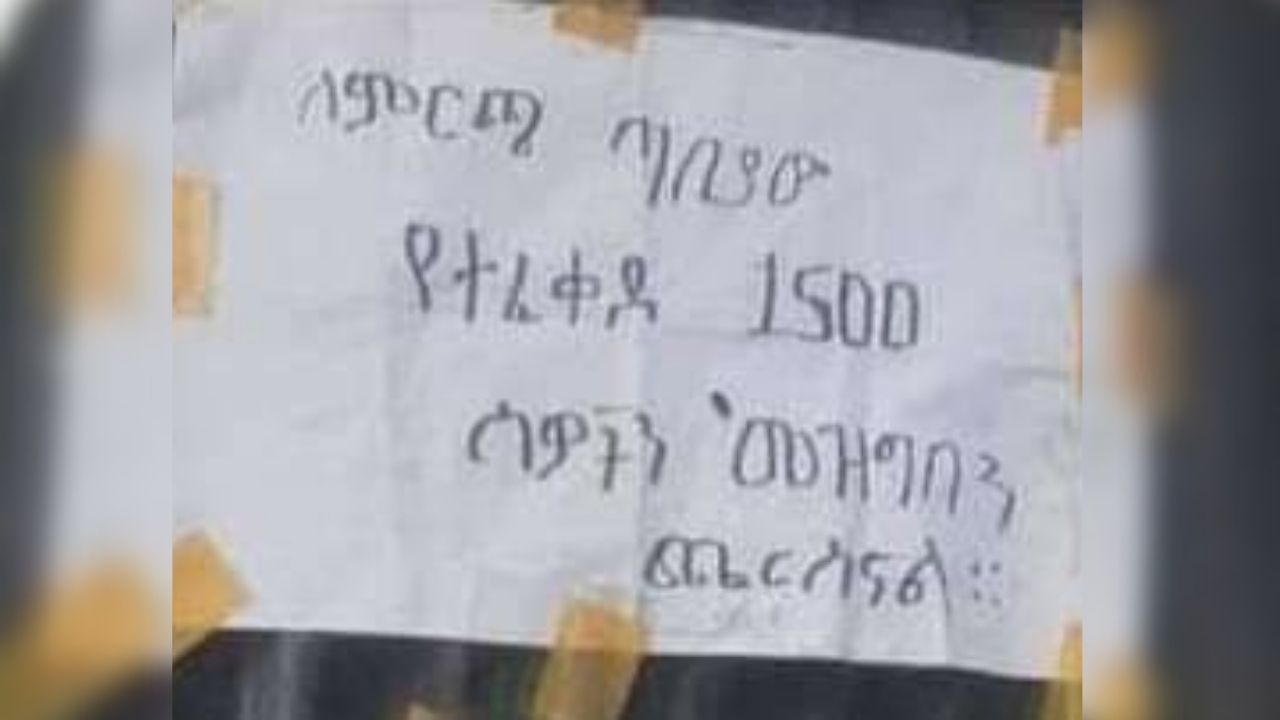 ለምርጫ ጣቢያው
የተፈቀደ 1500
ሰዎችን መዝግበን
ጨርሰናል ።